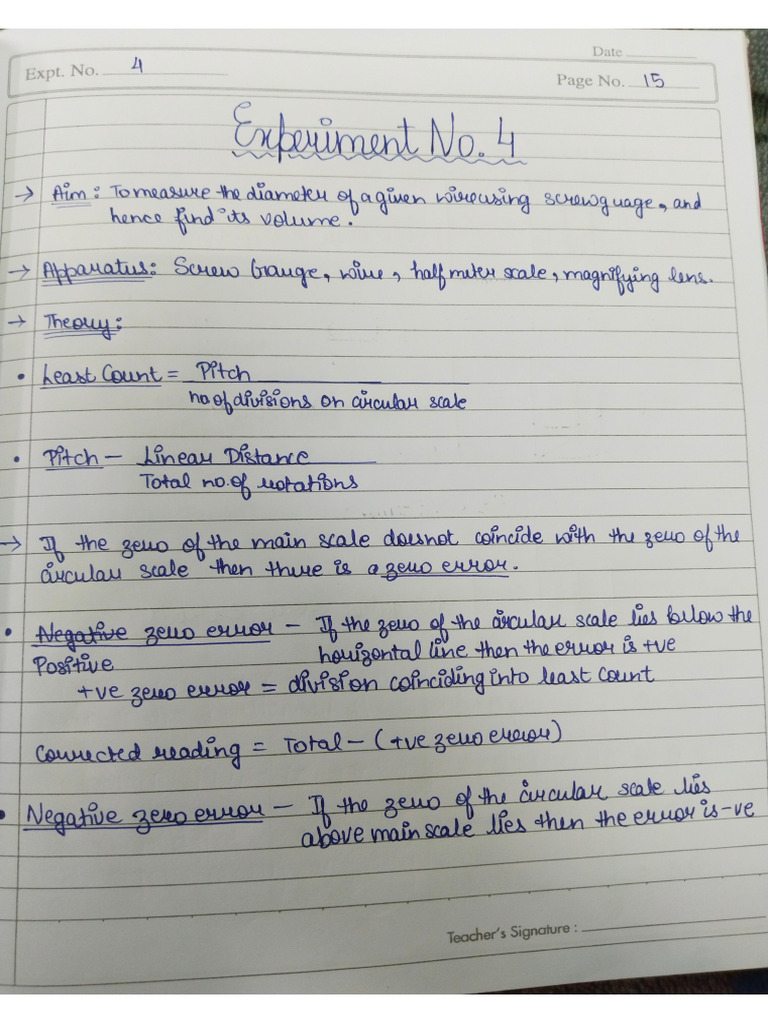 Date
Expt. No. 4
Page No. 15
Experiment No. 4
→ Aim: To measure the diameter of a given wire using screw guage, and
hence find its volume.
→ Apparatus: Screw Gauge, wire, half meter scale, magnifying lens.
→ Theory:
• Least Count = Pitch
no of divisions on circular scale
• Pitch — Linear Distance
Total no. of rotations
→ If the zero of the main scale does not coincide with the zero of the
circular scale then there is a zero error.
• Negative zero error — If the zero of the circular scale lies below the
Positive horizontal line then the error is +ve
+ve zero error = division coinciding into least count
Corrected reading = Total — (+ve zero error)
• Negative zero error — If the zero of the circular scale lies
above main scale lies then the error is -ve
Teacher's Signature :